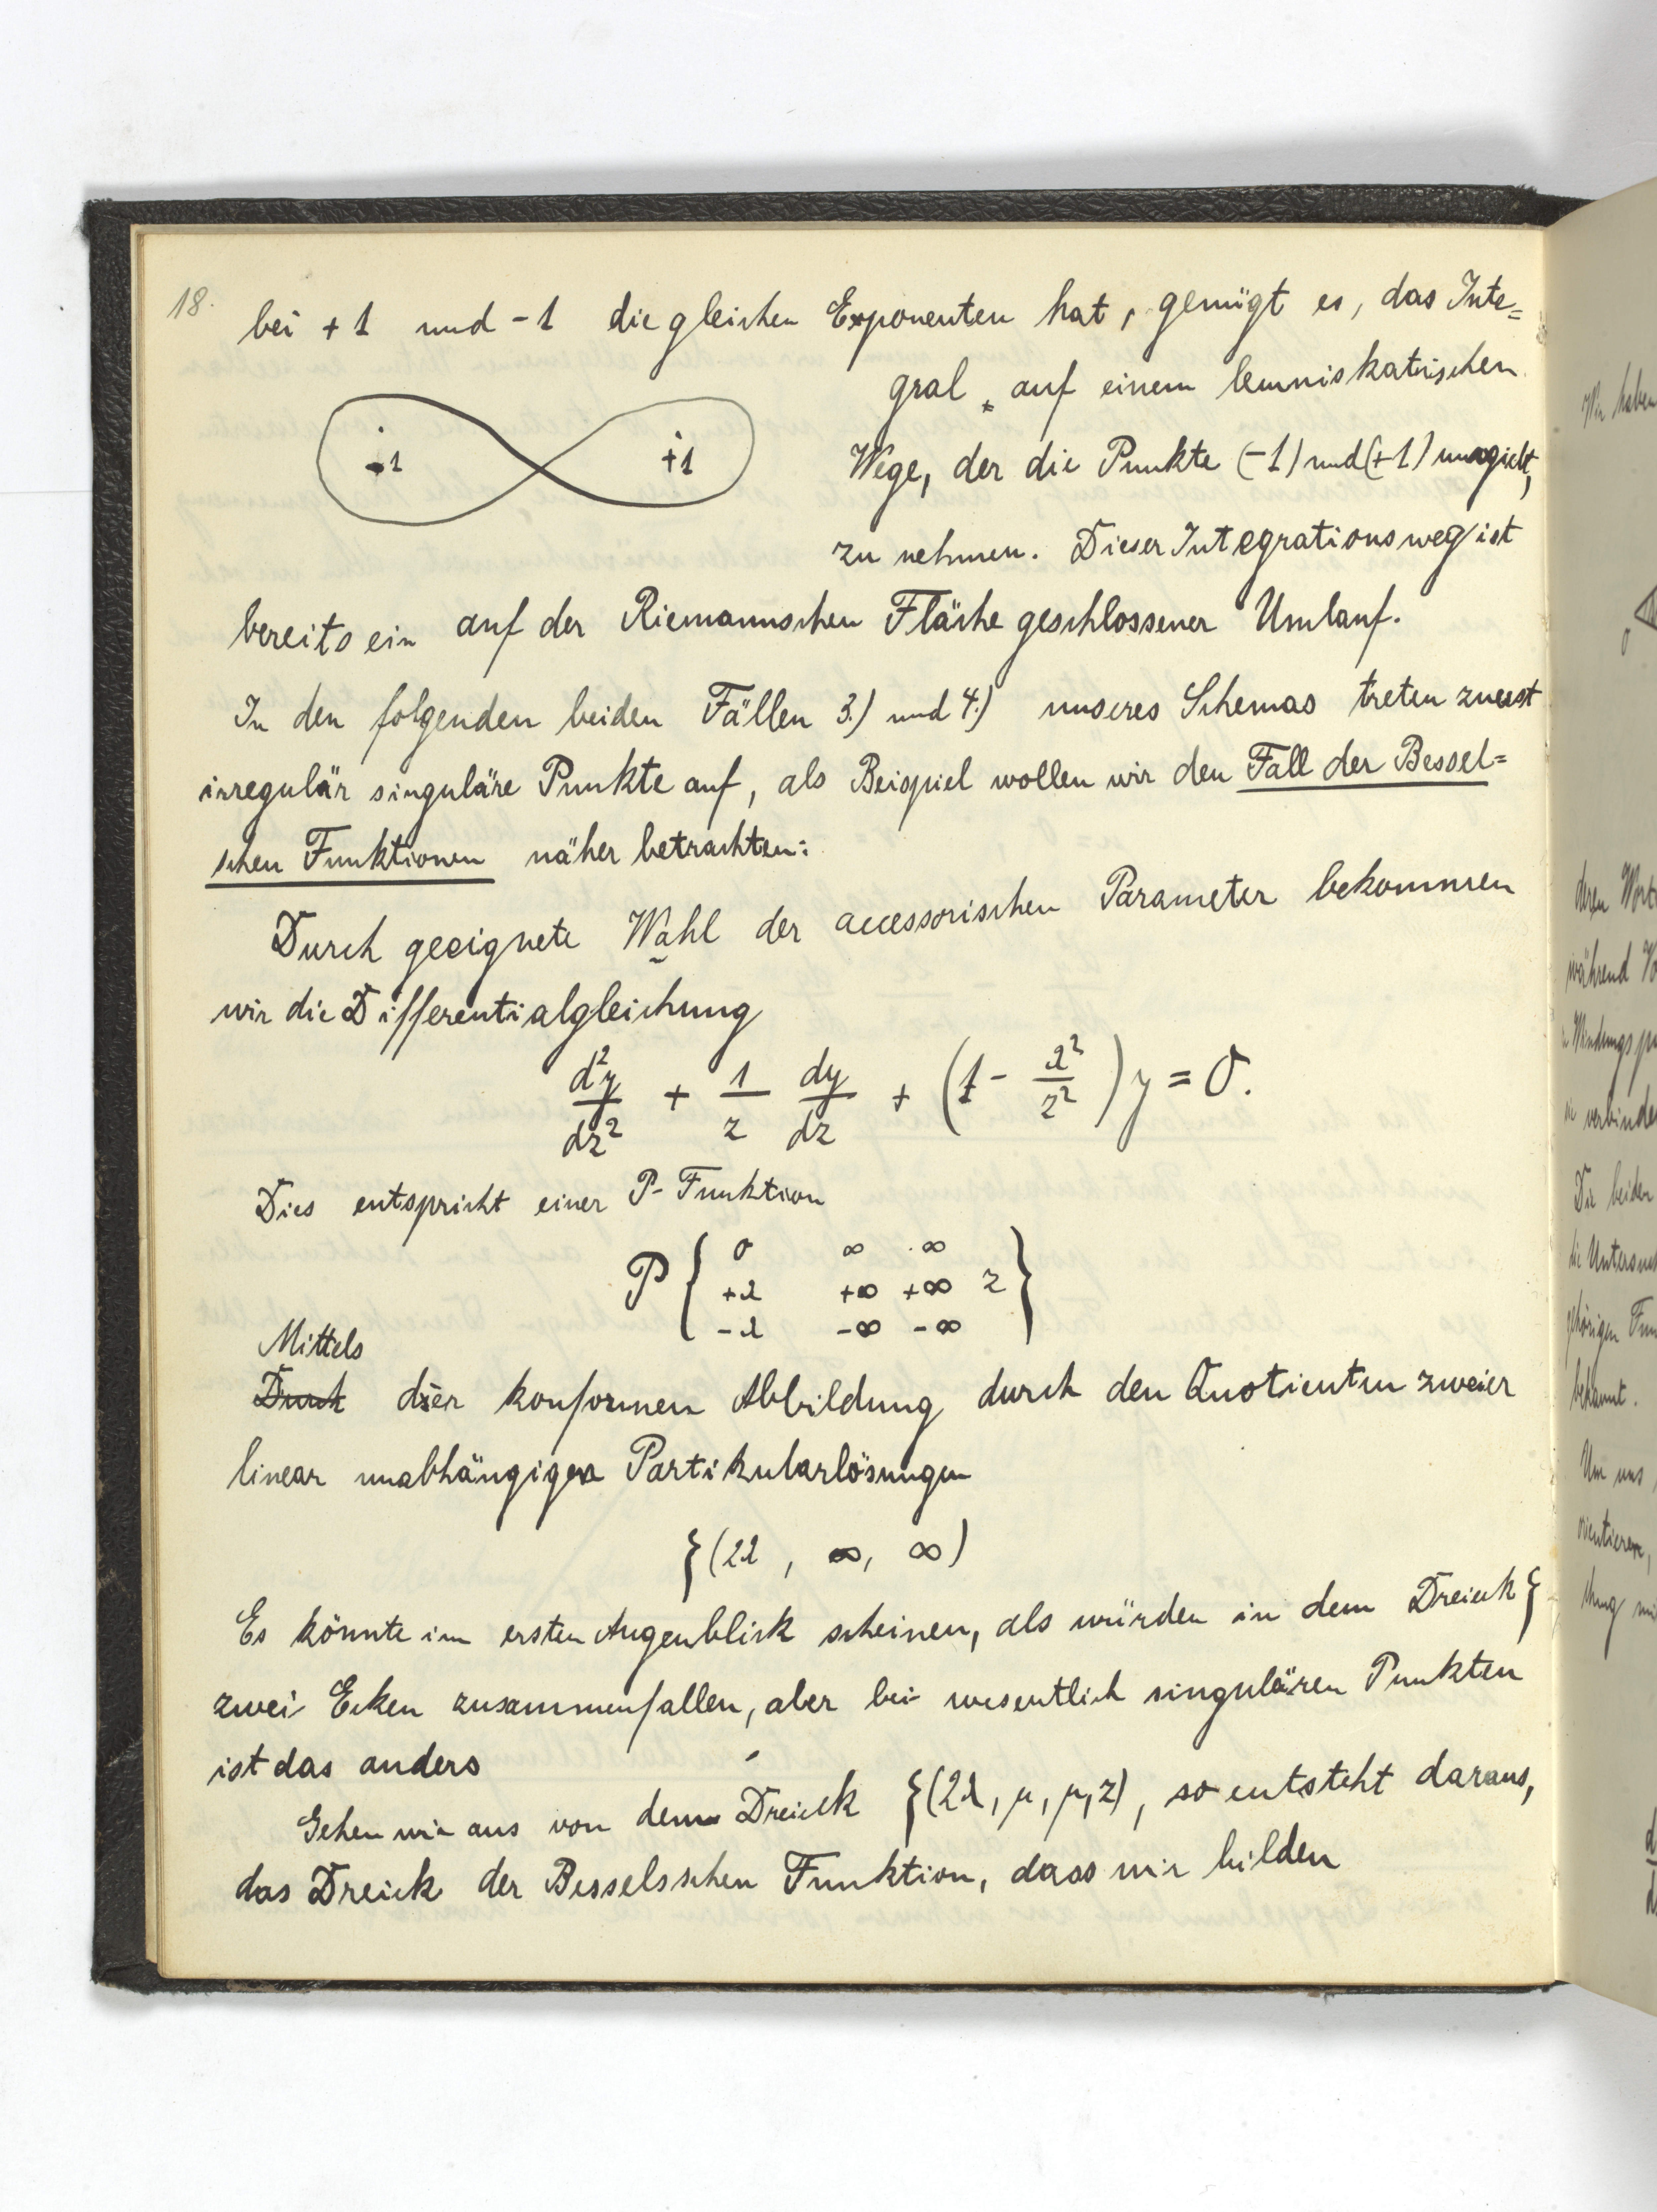 18.
bei +1 und -1 die gleichen Exponenten hat, genügt es, das Inte=
gral auf einem lemniskatischen
-1 +1
Wege, der die Punkte (-1) und (+1) umgiebt,
zu nehmen. Dieser Integrationsweg ist
bereits ein auf der Riemannschen Fläche geschlossener Umlauf.
In den folgenden beiden Fällen 3.) und 4.) unseres Schemas treten zuerst
irregulär singuläre Punkte auf, als Beispiel wollen wir den Fall der Bessel=
schen Funktionen näher betrachten:
Durch geeignete Wahl der accessorischen Parameter bekommen
wir die Differentialgleichung
d²y/dz² + 1/z dy/dz + (1 - λ²/z²) y = 0.
Dies entspricht einer P-Funktion
P { 0 ∞ ∞
+λ +∞ +∞ z }
-λ -∞ -∞
Mittels
Durch der konformen Abbildung durch den Quotienten zweier
linear unabhängiger Partikularlösungen
{(2λ, ∞, ∞)
Es könnte im ersten Augenblick scheinen, als würden in dem Dreieck {
zwei Ecken zusammenfallen, aber bei wesentlich singulären Punkten
ist das anders
Gehen wir aus von dem Dreieck {(2λ, μ, μ, z), so entsteht daraus,
das Dreieck der Besselsschen Funktion, dass wir bilden